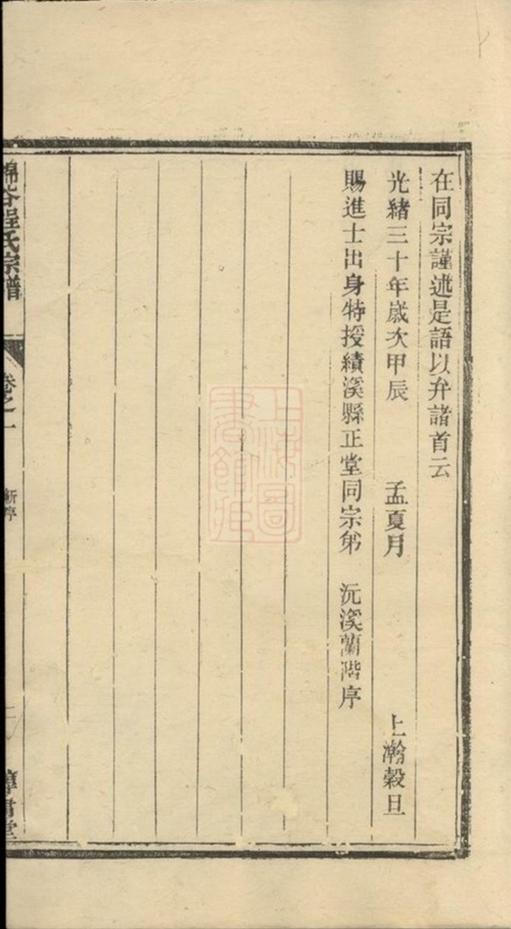 在同宗謹述是語以弁諸首云
光緒三十年歲次甲辰　孟夏月　上瀚穀旦
賜進士出身特授績溪縣正堂同宗弟　沅溪蘭階序
上海圖書館藏
程氏宗譜
卷之一
新序